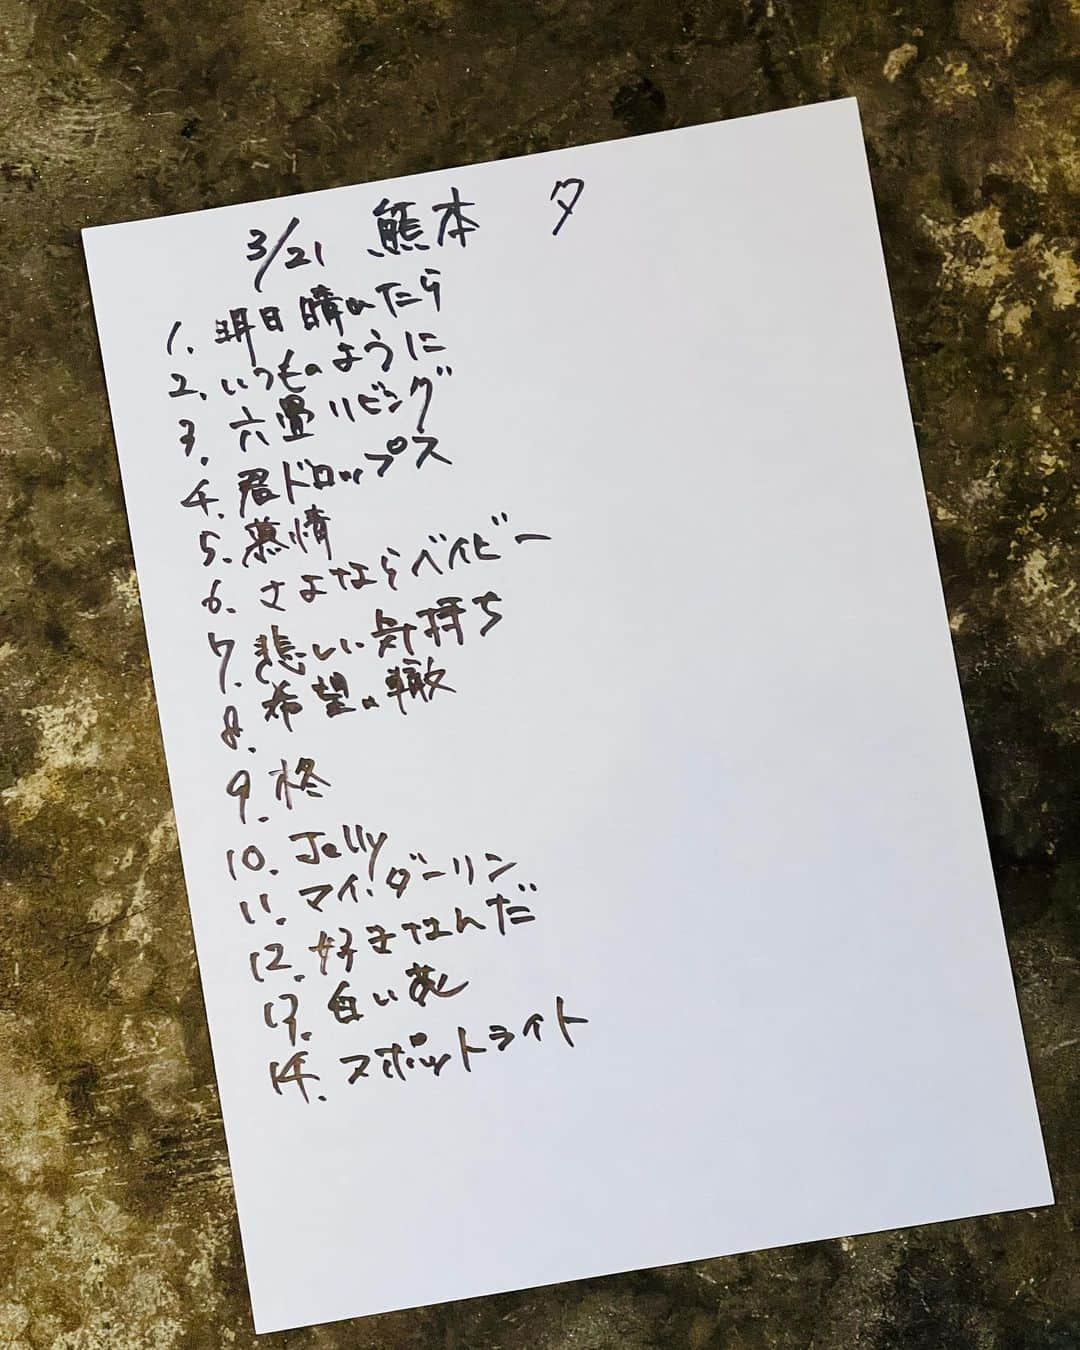 3/21 熊本 夕
1. 明日晴れたら
2. いつものように
3. 六畳リビング
4. 君ドロップス
5. 慕情
6. さよならベイビー
7. 悲しい気持ち
8. 希望の轍
9. 柊
10. Jelly
11. マイ・ダーリン
12. 好きなんだ
13. 白い花
14. スポットライト